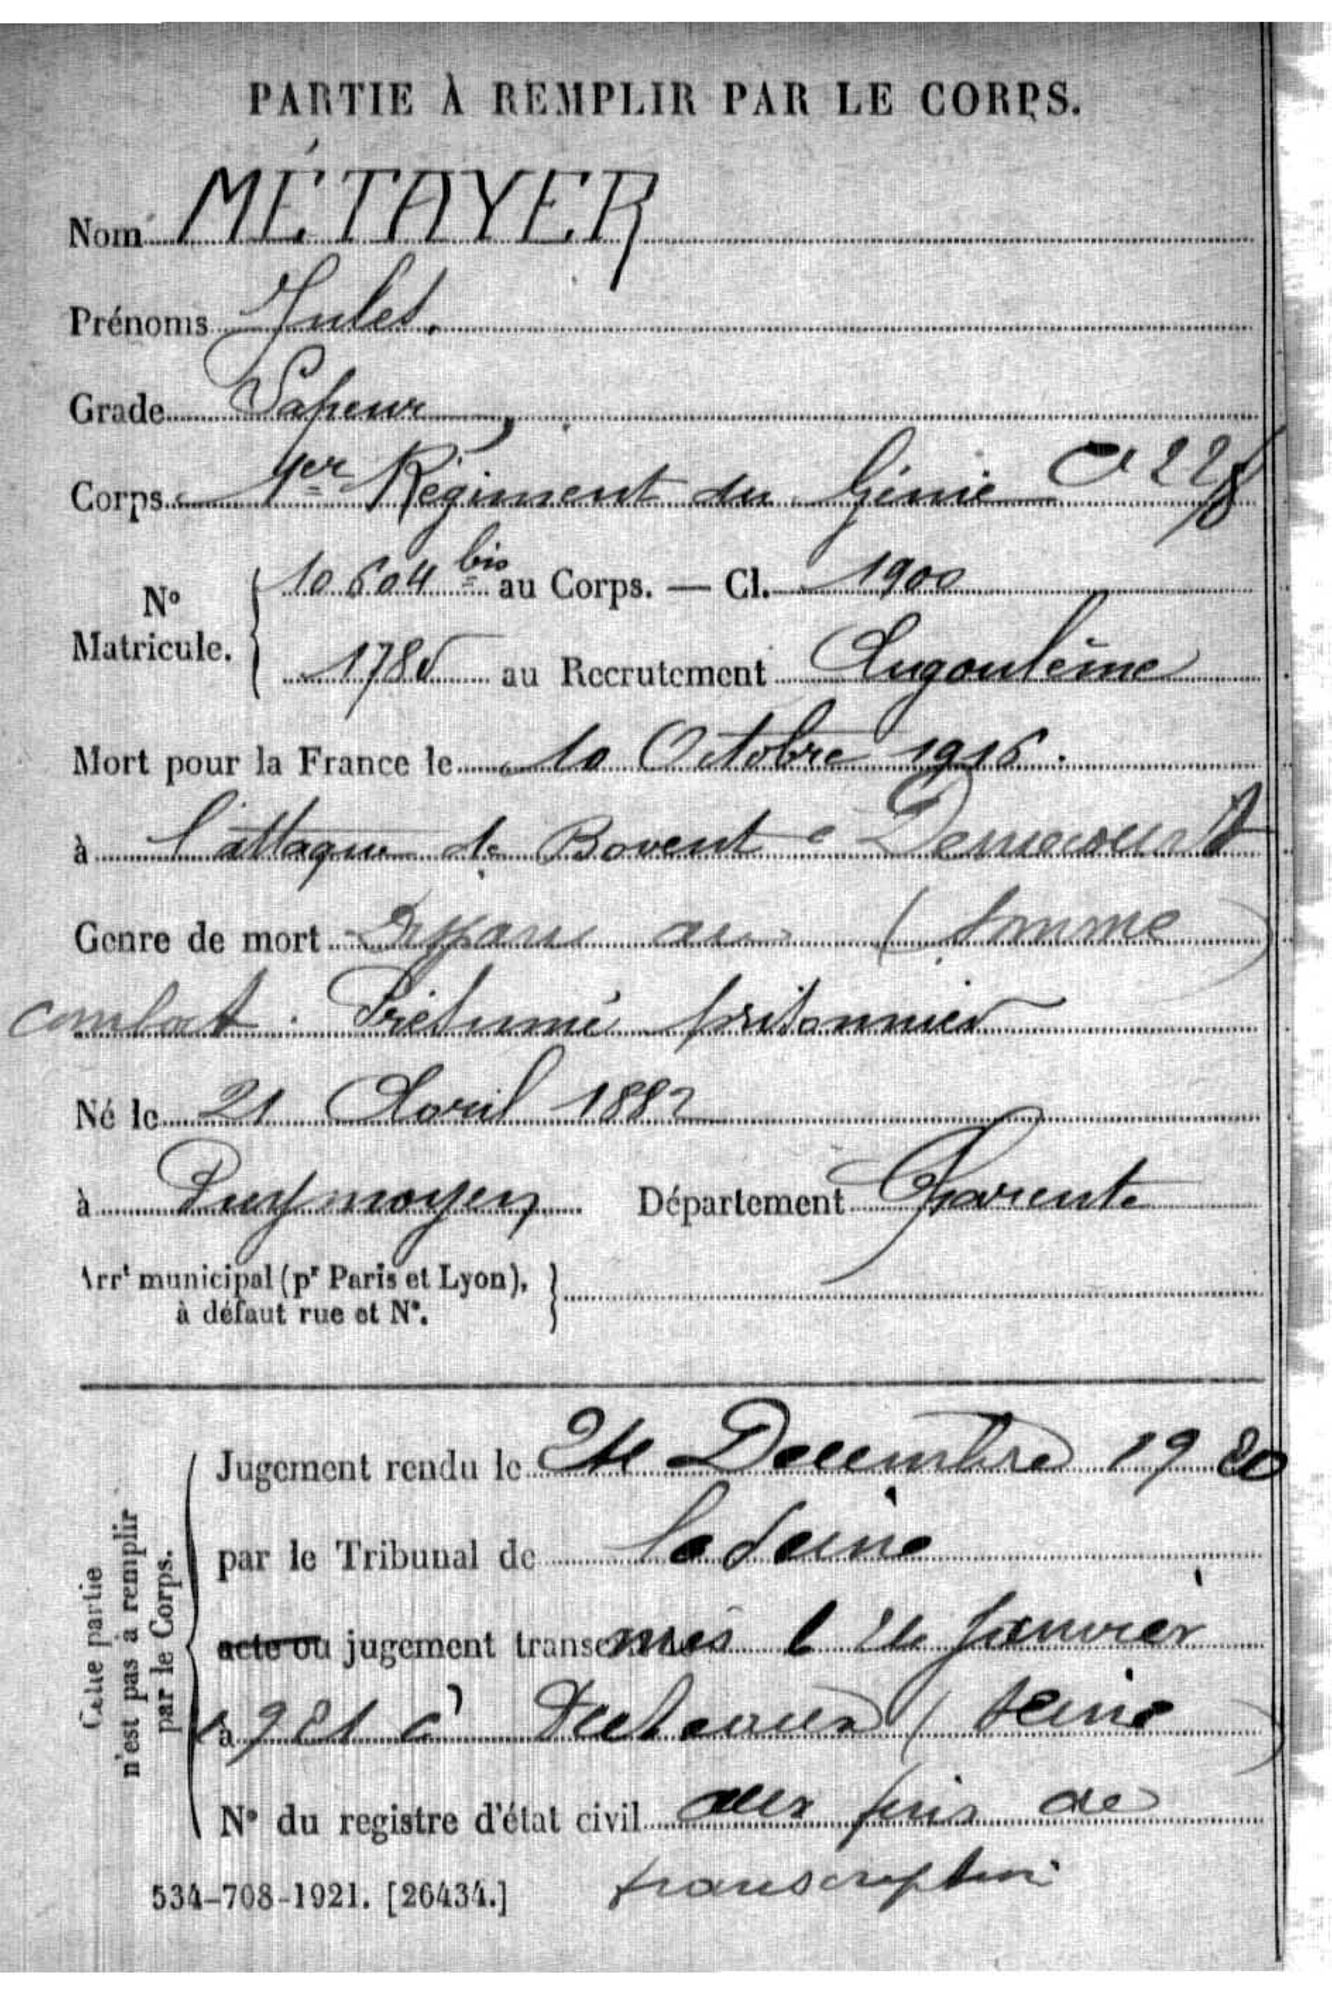 PARTIE À REMPLIR PAR LE CORPS.
Nom MÉTAYER
Prénoms Jules.
Grade Sapeur
Corps 1er Régiment du Génie Cie 22/8
N° Matricule. 10604 bis au Corps. — Cl. 1900
1780 au Recrutement Angoulême
Mort pour la France le 10 Octobre 1916.
à l'attaque de Bovent
Genre de mort Disparu au (Somme)
combat. Présumé prisonnier
Né le 21 Avril 1882
à Puymoyen Département Charente
Arrt municipal (pr Paris et Lyon),
à défaut rue et N°.
Cette partie
n'est pas à remplir
par le Corps.
Jugement rendu le 24 Decembre 1920
par le Tribunal de la Seine
acte ou jugement transmis le Janvier
1921 à Puteaux (Seine)
N° du registre d'état civil aux fins de
transcription
534-708-1921. [26434.]